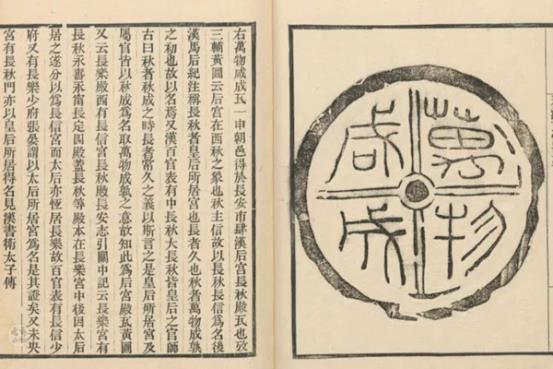 萬物
咸成
右萬物咸成瓦一申朝邑得於長安市肆漢后宫長秋殿瓦也攷
三輔黄圖云后宫在西秋之象也秋主信故以長秋長信爲名後
漢馬后紀注稱長秋者皇后所居宫也長者久也秋者萬物成孰
之初也故以名焉又漢百官表有中長秋大長秋皆皇后之官師
古曰秋者秋成之時長者常久之義以斯言之是皇后所居宫及
屬官皆以秋成爲名取萬物成孰之意故知此爲后宫殿瓦黄圖
又云長樂殿西有長信宫長秋殿長安志引關中記云長樂宫有
長秋永壽永甯長定四殿蓋長秋等殿本在長樂宫中後因太后
居之遂分以爲長信宫而太后亦恆居長樂故百官表有長信少
府又有長樂少府張晏謂以太后所居宫爲名是其證矣又未央
宫有長秋門亦以皇后所居得名見漢書衛太子傳